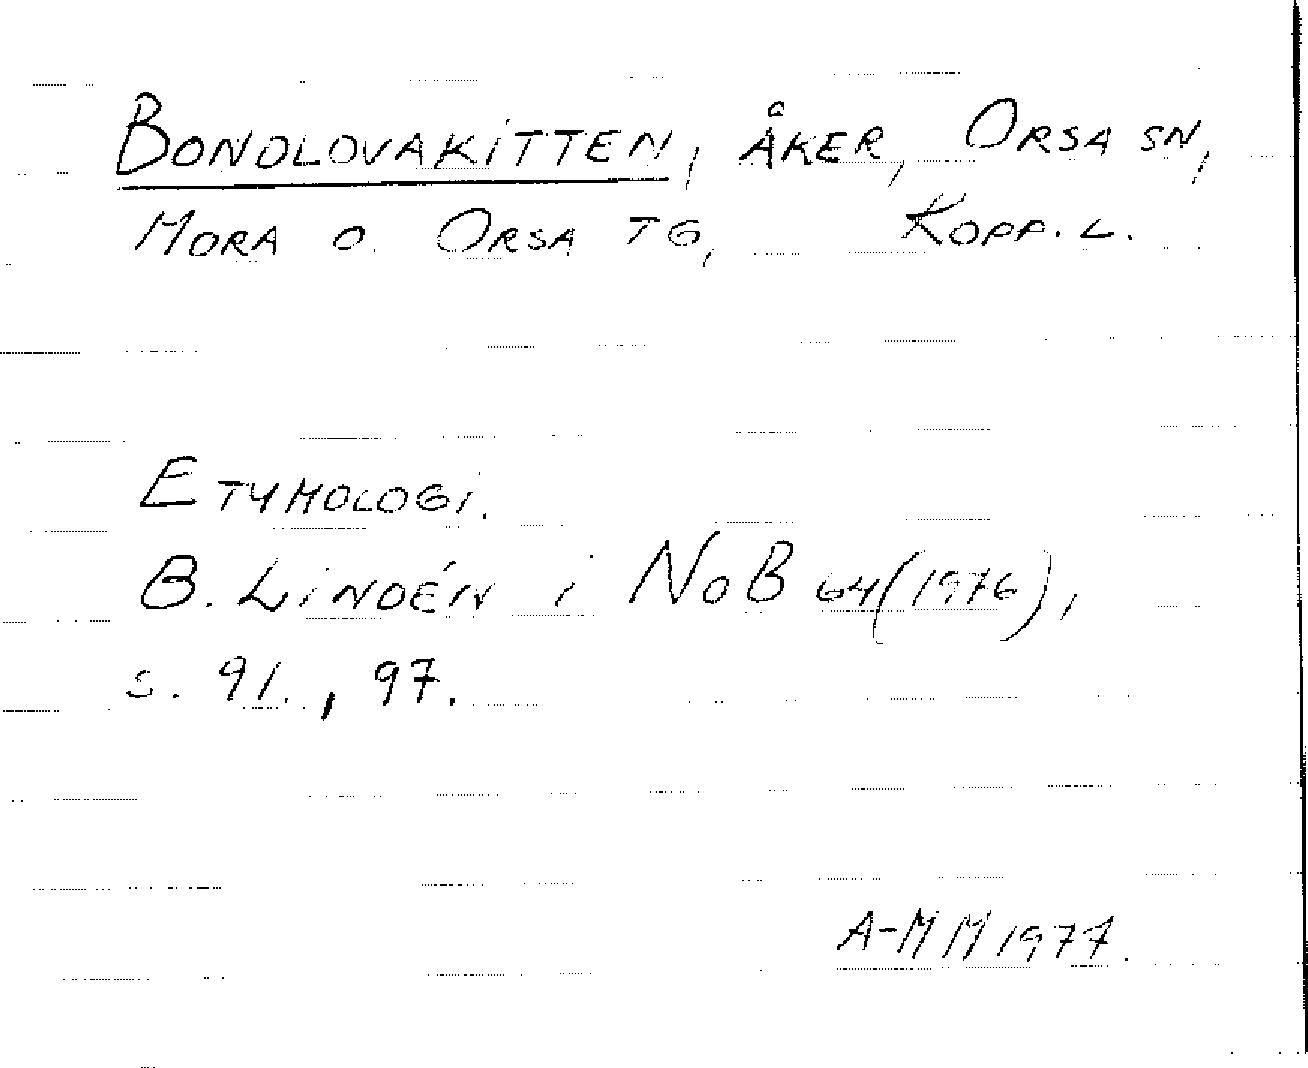 BONDLOVAKITTEN, ÅKER, ORSA SN,
MORA O. ORSA TG, KOPP. L.
ETYMOLOGI.
B. LINDÉN i NoB 64 (1976),
S. 91., 97.
A-MM 1977.